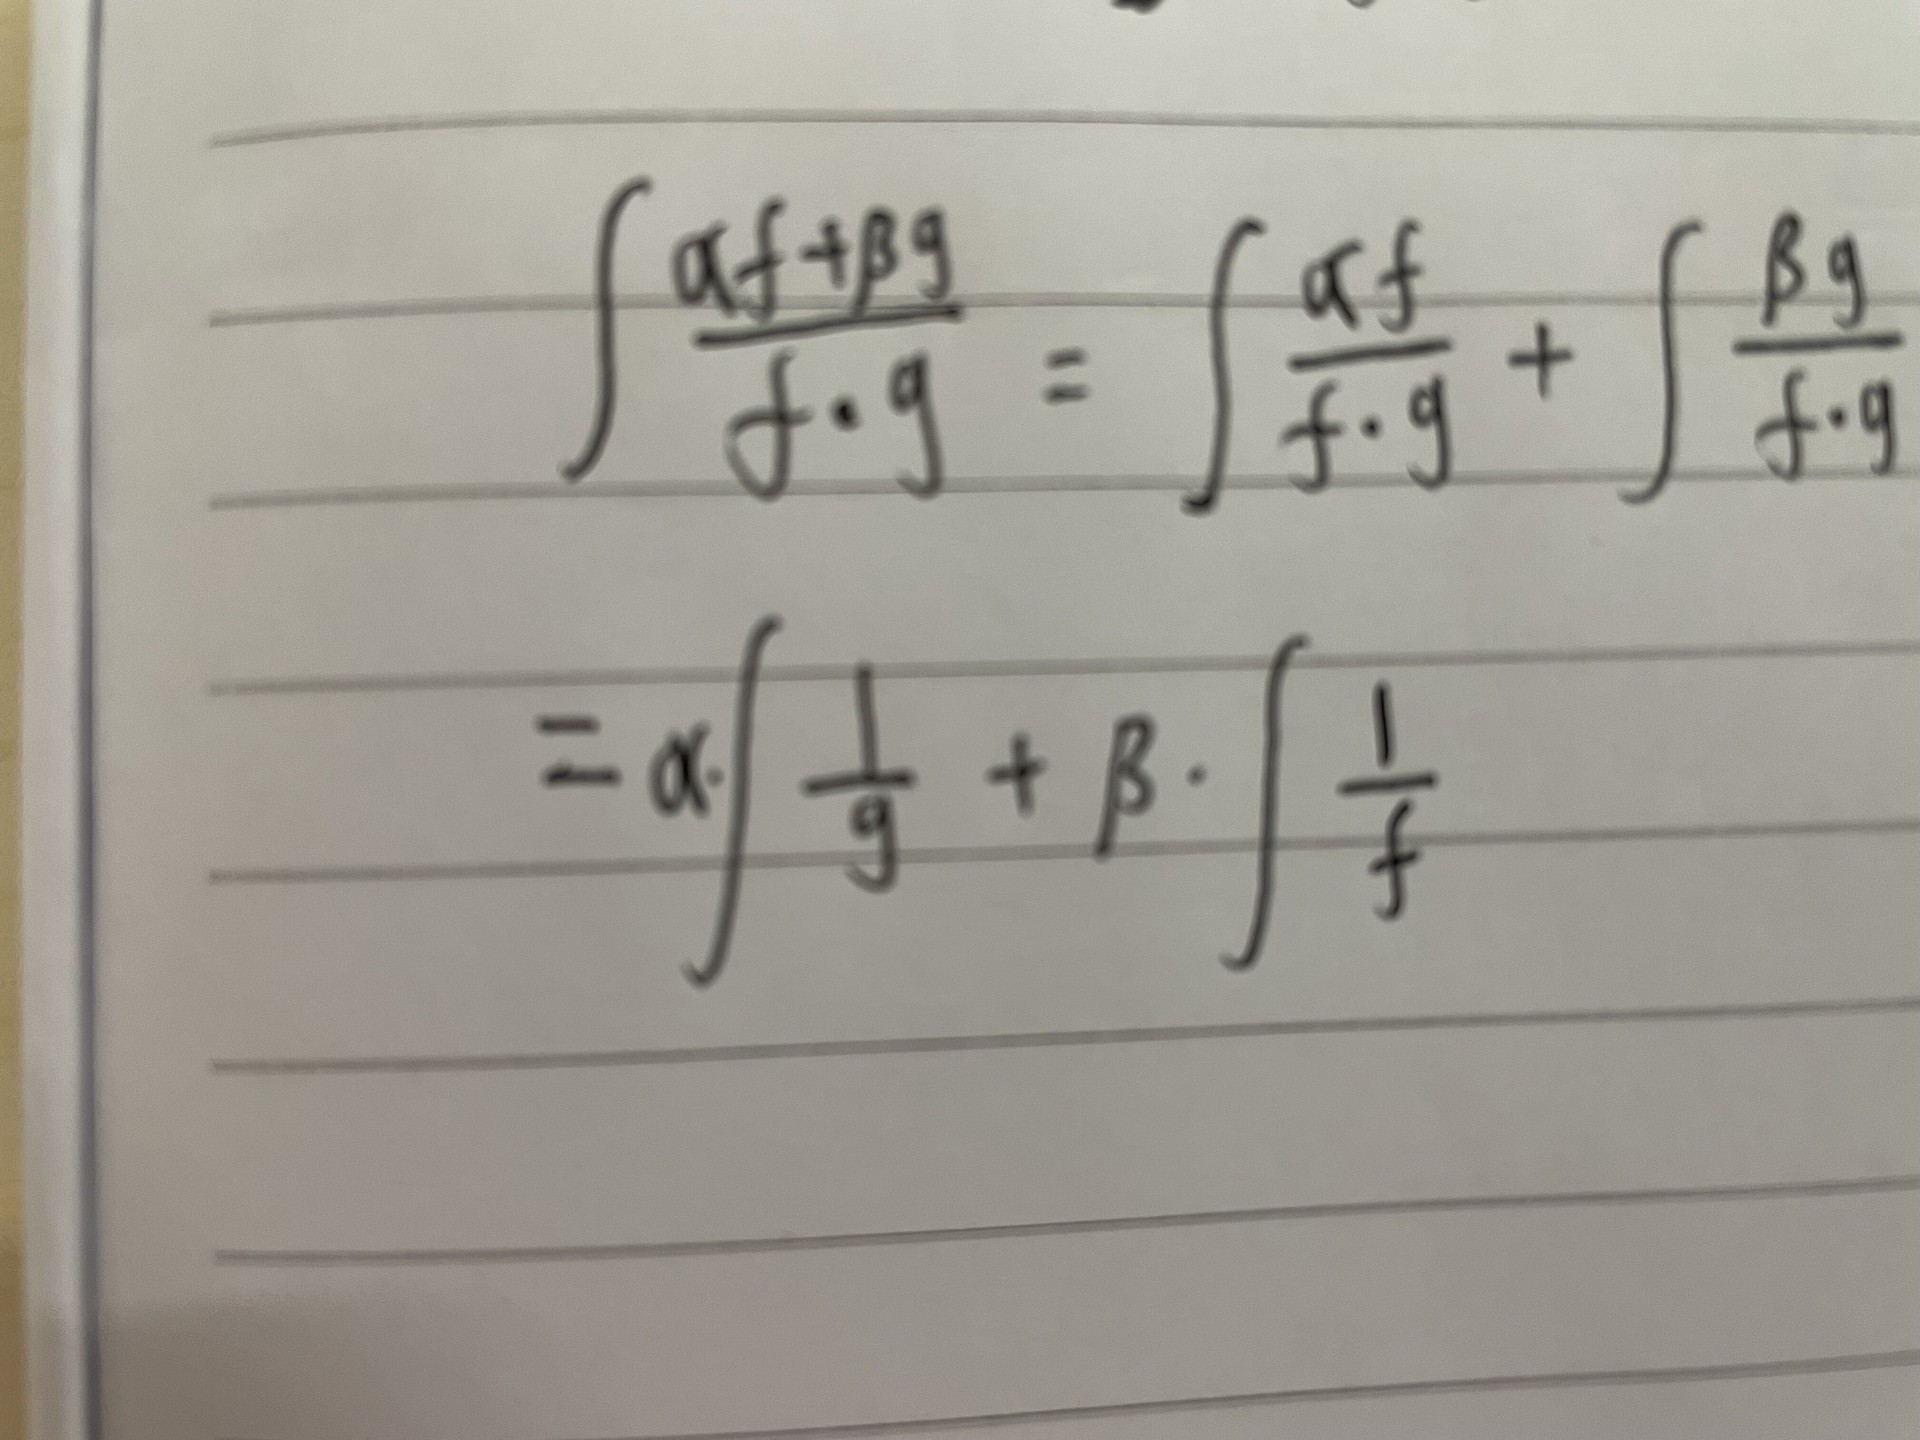 ∫ (αf+βg)/(f·g) = ∫ αf/(f·g) + ∫ βg/(f·g)
= α·∫ 1/g + β·∫ 1/f